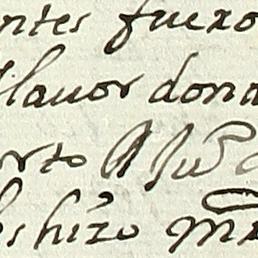 ntes fuero
llauor dona
erto A Ju
hizo m